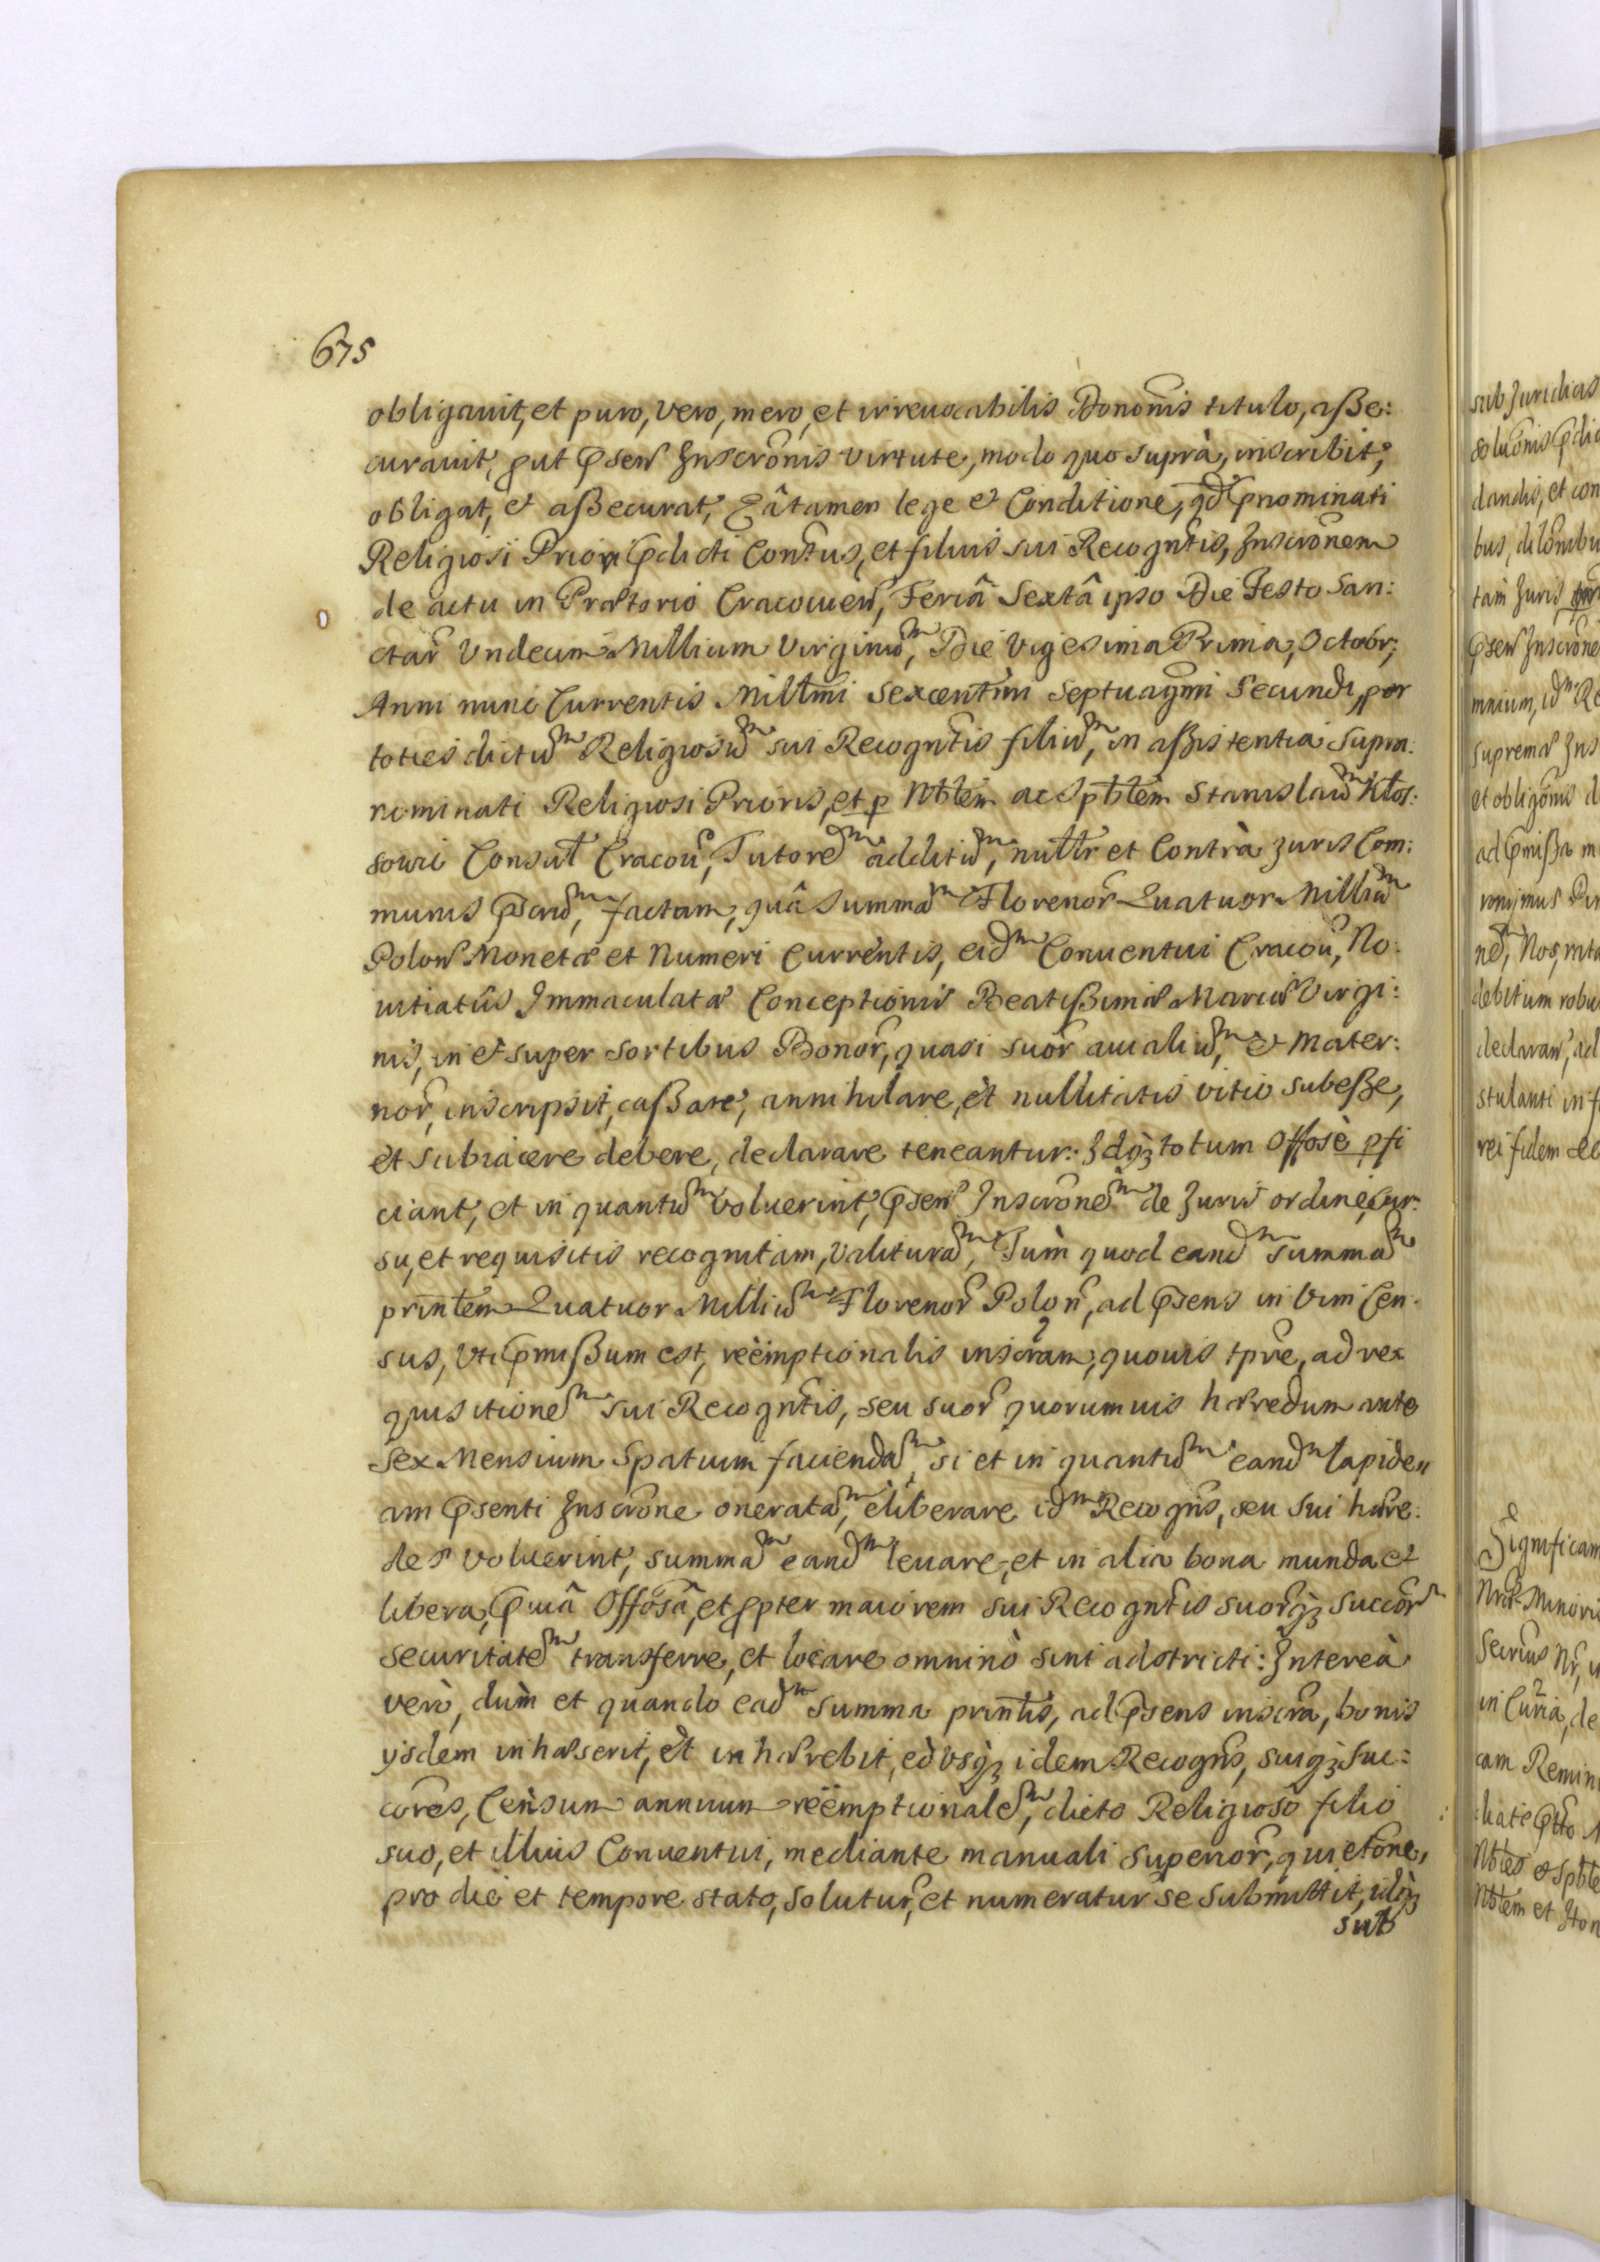 675
obligauit, et puro, vero, mero, et irreuocabilis Donõnis titulo, aße:
curauit, ꝓut p̃señ Inscrõnis virtute, modo quo suprà, inscribit,
obligat, et aßecurat, eâ tamen lege et Conditione, qd̃ p̃nominati
Religiosi Priori p̃dicti Conṽtus, et filius sui Recogñtis, Inscrõnem
de actu in Prætorio Cracouieñ, Feriâ Sextâ ipso Die Festo San:
ctar̃ Vndecim Millium Virginũm, Die Vigesima Prima, Octobr;
Anni nunc Currentis Millm̃i Sexcentm̃i Septuagm̃i Secundi, per
toties dictũm Religiosũm sui Recogñtis filiũm, in aßistentia supra:
nominati Religiosi Prioris, et ꝑ Nblẽm ac Spblẽm Stanislaũm Kłos:
sowi Consul̃ Cracoũ, Tutorẽm additũm, nullr̃ et Contrà Juris Com:
munis p̃scrũm, factam, quâ Summãm Florenor̃ Quatuor Milliũm
Poloñ Monetæ et Numeri Currentis, eid̃m Conuentui Cracoũ, No:
uitiatûs Immaculatæ Conceptionis Beatißimæ Mariæ Virgi:
nis, in et super sortibus Bonor̃, quasi suor̃ auialiũm, et Mater:
nor̃, inscripsit, caßare, annihilare, et nullitatis vitio subeße,
et subiacere debere, declarare teneantur: Idqꝫ totum Offosè ꝑfi
ciant, et in quantũm voluerint, p̃señ Inscrõnẽm de Juris ordine, cur:
su, et requisitis recognitam, valiturãm, Tum quod eand̃m summãm
prinlẽm Quatuor Milliũm Florenor̃ Poloñ, ad p̃sens in vim Cen:
sus, vti p̃mißum est, reëmptionalis inscr̃am, quouis tpr̃e, ad re
quisitionẽm sui Recogñtis, seu suor̃ quorumuis hæredum ante
Sex Mensium Spatium faciendãm, si et in quantũm eand̃m lapide
am p̃senti Inscrõne oneratãm, eliberare id̃m Recogñs, seu sui hære:
des voluerint, summãm eand̃m leuare, et in alia bona munda et
libera, p̃uiâ Offosâ, et ꝓpter maiorem sui Recogñtis suorqꝫ Succor̃
securitatẽm transferre, et locare omninò sint adstricti: Intereà
verò, dùm et quando ead̃m Summa prinl̃is, ad p̃sens inscr̃a, bonis
ijsdem inhæserit, et inhærebit, eò vsqꝫ idem Recogñs, suiqꝫ Suc:
cores, Censum annuum reëmptionalẽm, dicto Religioso filio
suo, et illius Conuentui, mediante manuali Superior̃, quietõne,
pro die et tempore stato, solutur̃, et numeratur̃ se submittit, idqꝫ
sub